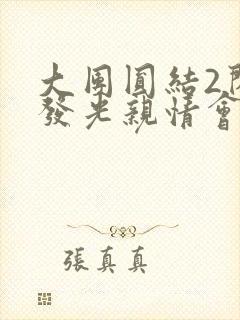 大團圓結2
發光親情會
張真真